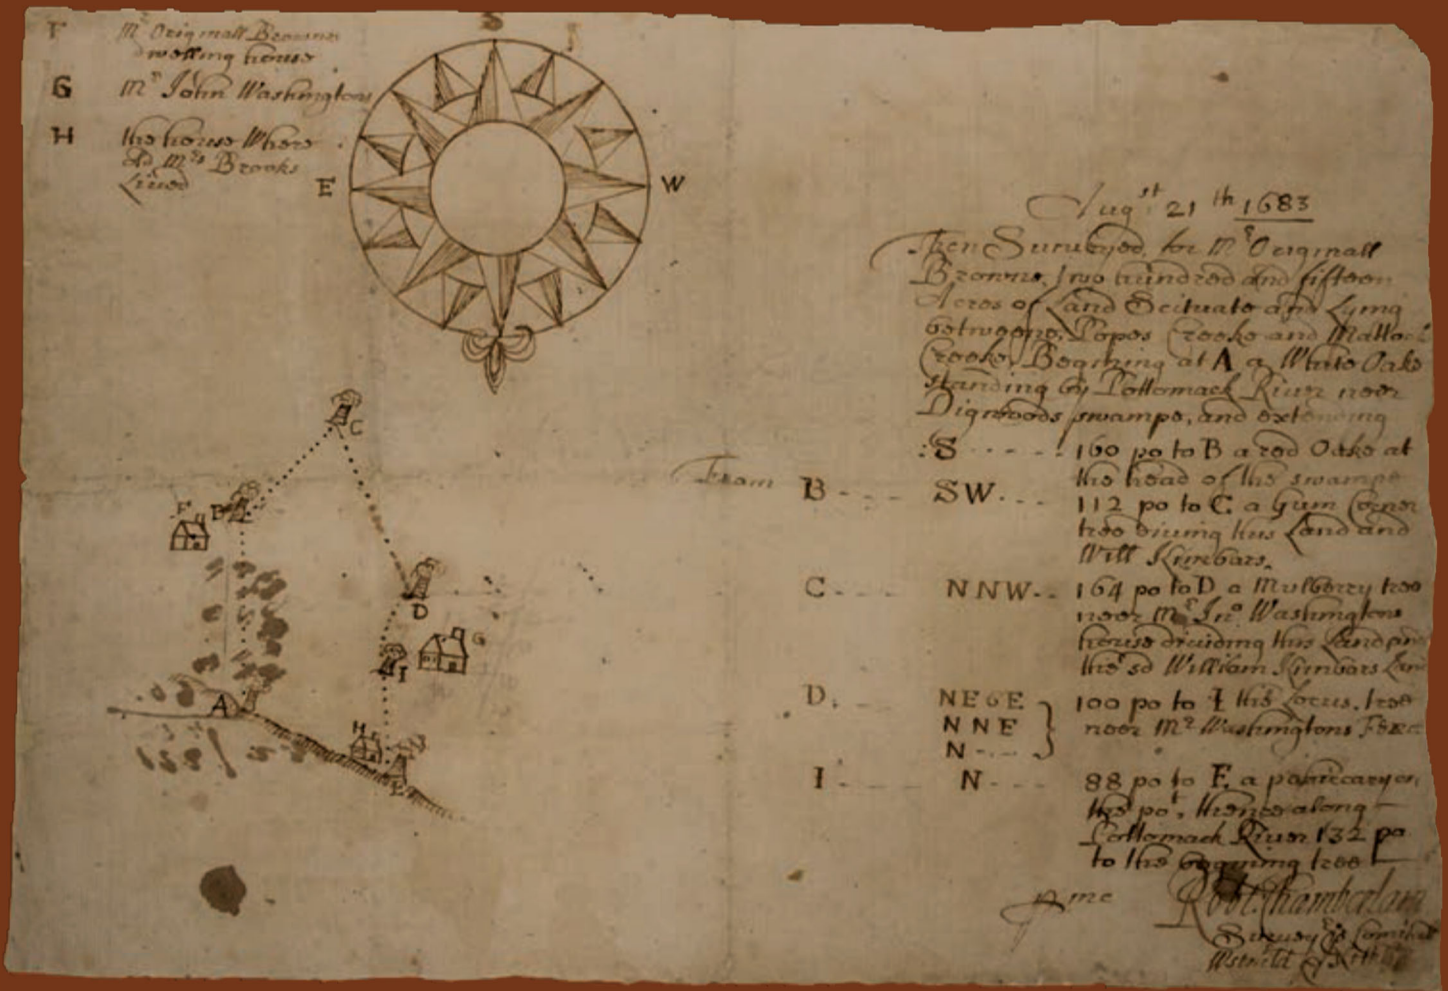 F Mr Originall Browns
dwelling house
G Mr John Washingtons
H the house Where
old Mrs Brooks
Liued
S
E
W
Augst 21th 1683
Then Surueyed for Mr Originall
Browne, Two hundred and fifteen
Acres of Land Scituate and Lying
betweene Popes Creeke and Mattock
Creeke, Begining at A a White Oake
standing by Pottomack Riuer neer
Digwoods swampe, and extending
:S 160 po to B a red Oake at
the head of the swampe
From B SW 112 po to C a Gum Corner
tree diuing this Land and
Will Kimbars.
C NNW 164 po to D a Mulberry tree
neer Mr Jno Washingtons
house diuiding this Land and
the sd William Kimbars Land
D NE6E
NNE
N
100 po to I the Locus. tree
neer Mr Washingtons
I N 88 po to E. a
the pot, thence along
Pottomack Riuer 132 po
to the begining tree
p me Robt: Chamberlain
Suruey
C
F B
D
G
I
A
H
E